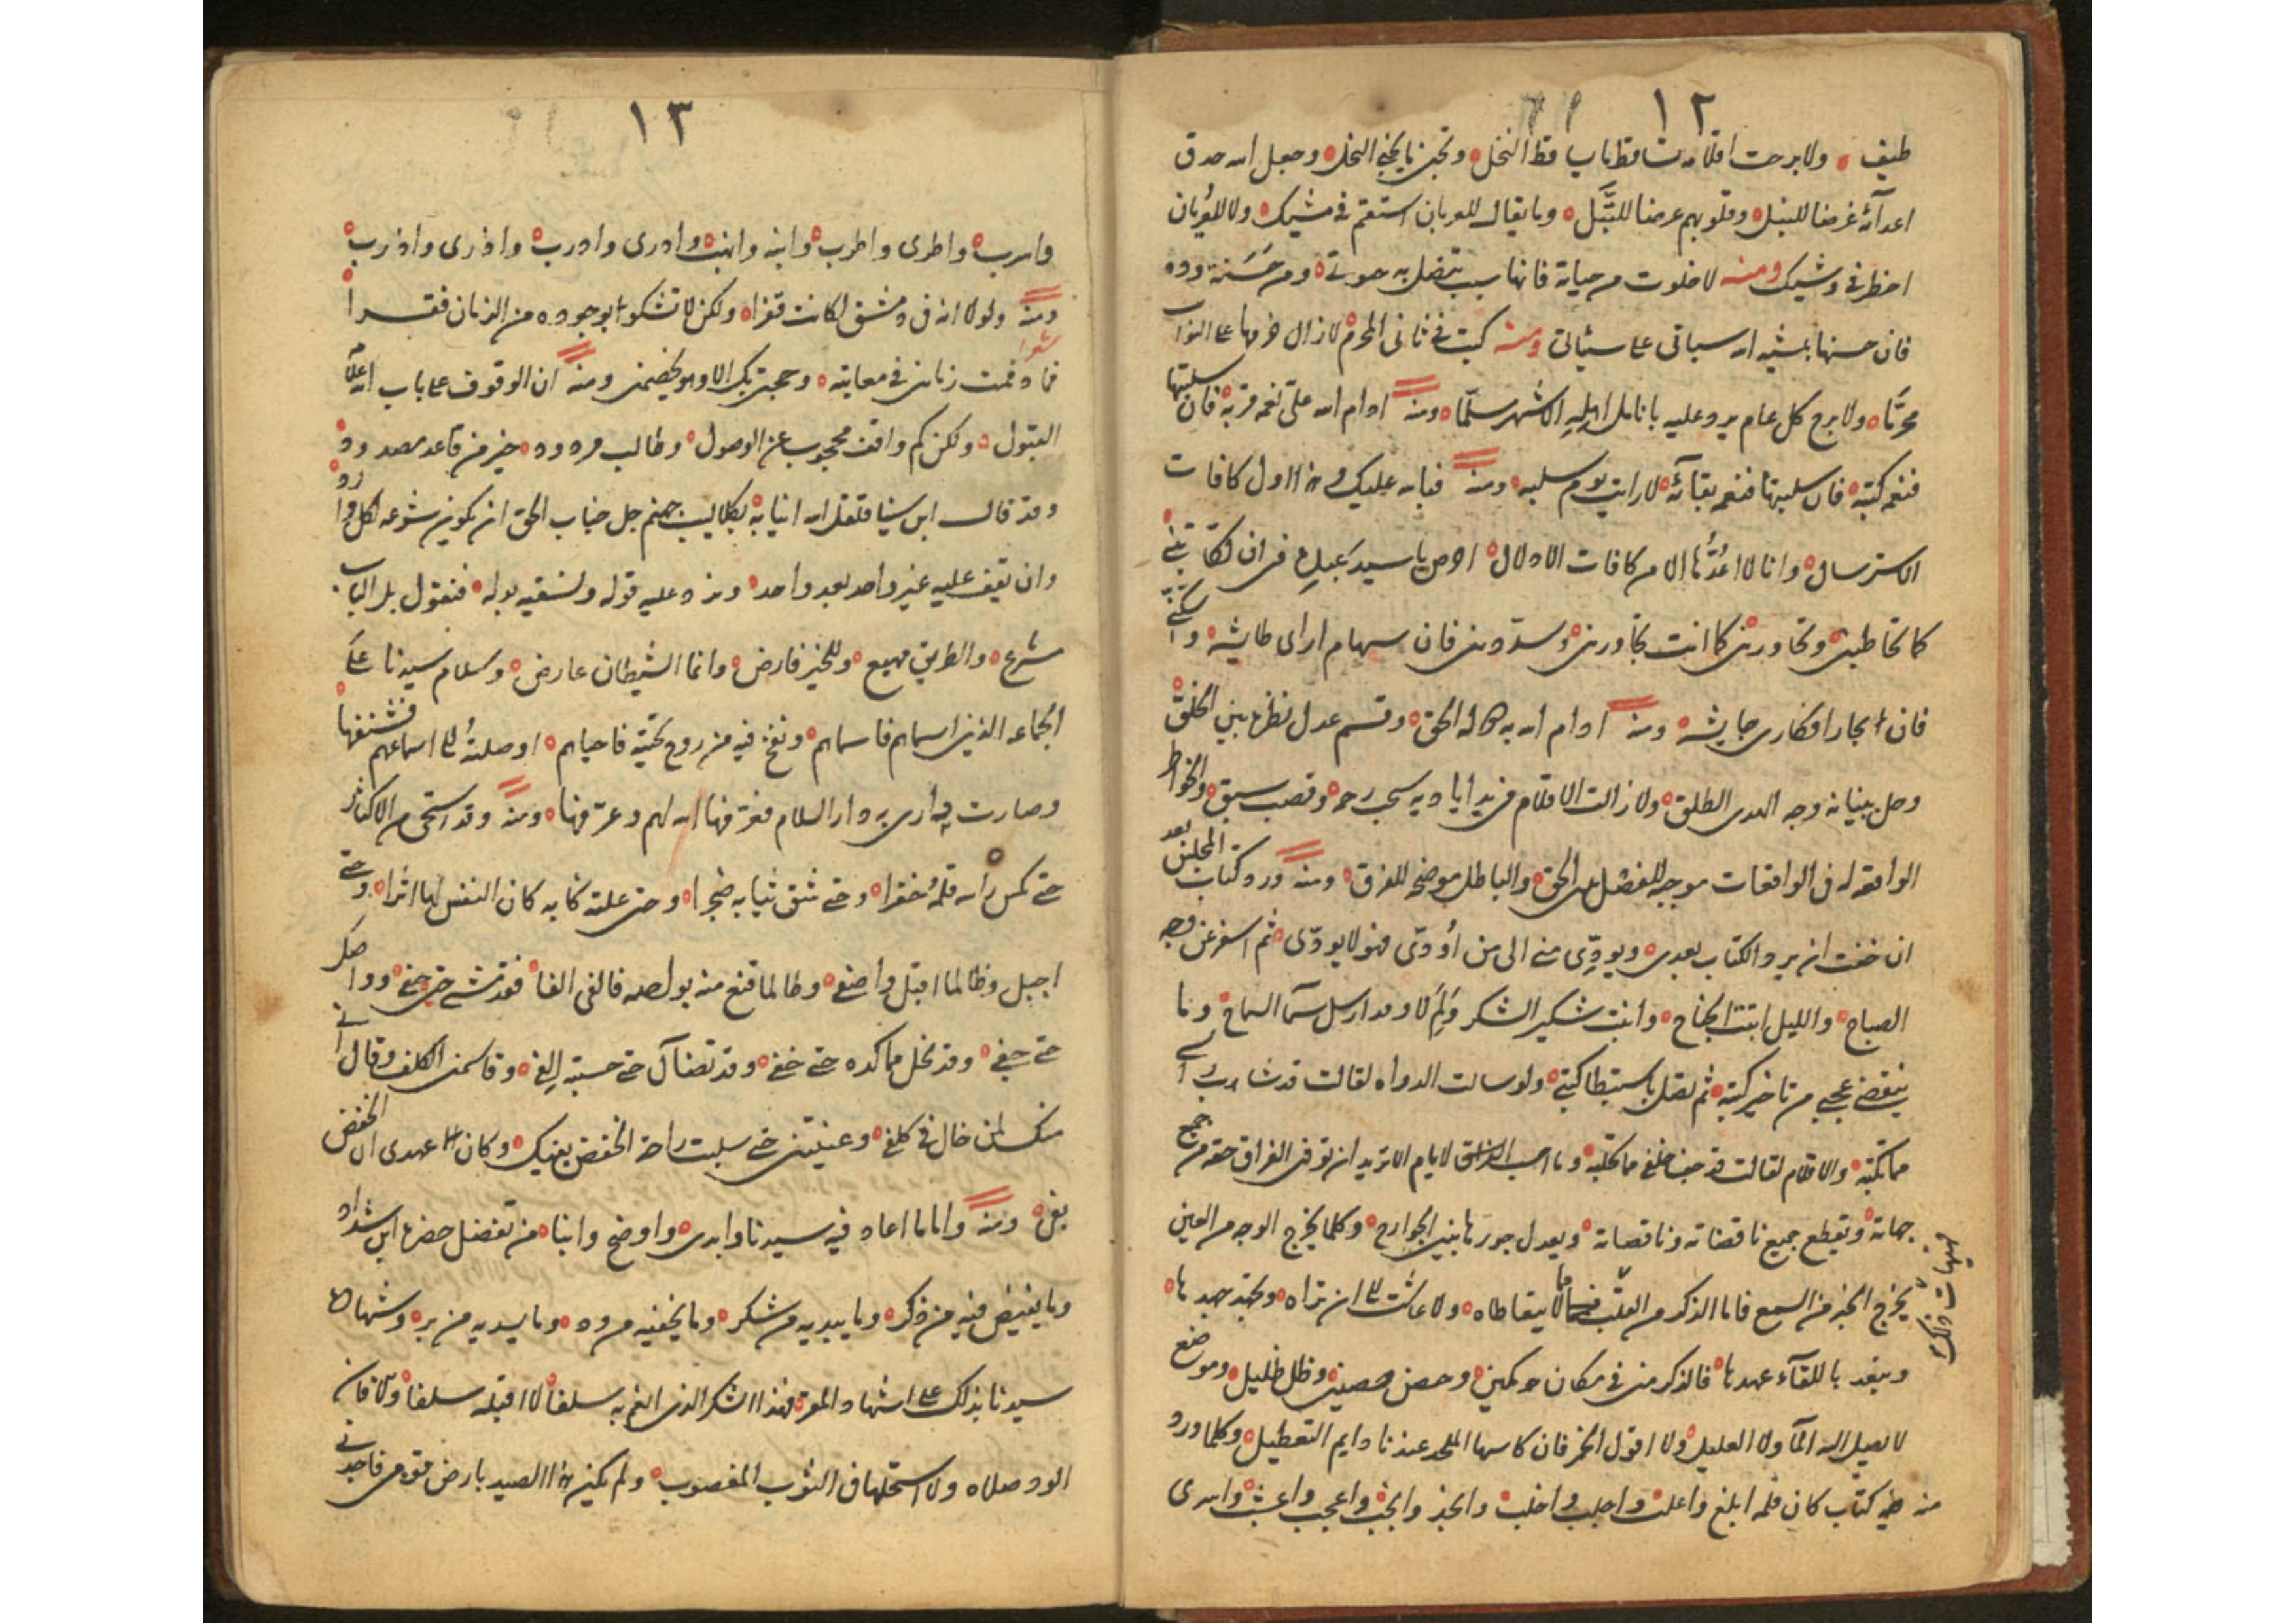 ١٢
طيف ولا برحت اقلامه تساقط ما يساقط النخل وتجني ما يجني النحل وجعل الله حدق
اعدآئه غرضا للنبل وقلوبهم عرضا للتبل وما يقال للعريان استقم في مشيك ولا للعريان
اخطر في وشيك ومنه لا خلوت من حياته فانها سبب يتصل به موتي ومن حسنة وده
فان حسنها يمشيه الله سياتي على سيئاتي ومنه كتبت في ثاني المحرم لا زال
محرما ولا برح كل عام يرد عليه بانامل اهليه الاشهر سلما ومنه ادام الله على نعمه قربه فان سلبتها
فنعم كتبه فان سلبتها فنعم بقآئه لا رايت يوم سلبه ومنه فبالله عليك هذا اول كافات
الاسترسال وانا لا اعدها الا من كافات الادلال اوص يا سيد عبيدك في ان تكاتبني
كما تخاطبني وتحاورني كما انت تجاورني وسددني فان سهام اراي طايشه وسكني
فان بحار افكاري جايشه ومنه ادام الله به كماله الحق وقسم عدل نظره بين الخلق
وصل ببيانه وجه الهدى الطلق ولا زالت الاقلام في يد اياديه سحب رحمه وقصب سبق والخواطر
الوافقه له في الواقعات موجبه للفضل بين الحق والباطل موضحه للفرق ومنه ورد كتاب المجلس بعد
ان خفت ان يرد الكتاب بعدي ويودي مني الى من اودي فهو لا يودى ثم اسفر عن وجه
الصباح والليل ابنت الجناح وانبت شكير الشكر ولم لا وقد ارسل سمآ السماح وما
ينقضي عجبي من تاخير كتبه ثم نصل باستبطا كتبي ولو سالت الدواه لقالت قد شاب راسي
مما تكتبه والاقلام لقالت قد حفي خفي مما تكتبه وما احب الخلق لايام الا تريد ان توفى الفراق حقه من جميع
جهاته ويقطع جميع ناقضاته وناقصاته ويعدل جورها بين الجوارح وكلما يخرج الوجه من العين
يخرج الخبر من السمع فاما الذكر من القلب فما لا يتعاطاه ولا عاشت لي ان تراه ويجتهد جهدها
ويبعد باللقآء عهدها فالذكر مني في مكان مكين وحصن حصين وظل ظليل وموضع
لا يصل اليه الما ولا الغليل ولا اقول الخمر فان كاسها الملحد عندنا دايم التعطيل وكلما ورد
منه كتاب كان قلمه ابلغ واعلن واجلب واخلب وانجد وانجب واعجب واعذب واسرى
هيهات ذلك
١٣
واسرب واطرى واطرب وابنه وانبت وادرى وادرب واذرى واذرب
ومنه ولولا انه في دمشق لكانت قفرا ولكن لا تشكو بوجوده من الزمان فقرا
شعر
فما دفعت زماني في معاتبه وحجبتي بك الا وهو يخصمني ومنه ان الوقوف على باب الله علامه
القبول ولكن كم واقف محجوب عن الوصول وطالب مردود خير من قاعد مصدود
وقد قال ابن سينا فتعقل الله انيابه بكلاليب جهنم جل جناب الحق ان يكون شرعه لكل وارد
وان يقف عليه غير واحد بعد واحد ونرد عليه قوله ونسقيه بوله فنقول بل الباب
مشرع والطريق مهيع وللخير فارض وانما الشيطان عارض وسلام سيدنا على
الجماعه الذين اسماهم فاسماهم ونفخ فيه من روح تحيته فاحياهم اوصلته الى اسماعهم فشنفها
وصارت به داري دار السلام فعرفها الله لهم وعرفنها ومنه وقد استحى من الاكثار
حتى نكس راسه قلمه خفرا وحتى شق ثيابه ضجرا وحتى علمته كتابه كان النفس لها اثرا وحتى
اجبل وطالما اقتبل واصغى وطالما قنع منه بوصله فالفى الفا فقد مشى حتى حفي ودا
حتى جفي وقد نحل مما كده حتى خفي وقد تضآل حتى حسبته الفي وقاسمني الكلف وقال انى
منك لمن خال في كلفي وعنيتني حتى سلبت راحة الخفض بعنيك وكان عهدي ان الخفض
بفي ومنه واما ما اعاد فيه سيدنا وابدى واوضح وابنا من تفضل حضره ابن شداد
وما يفيض فيه من ذكر وما يبديه من شكر وما يخفيه من ود وما يسديه من بر وشهادة
سيدنا بذلك على اشهاد المقر فهذا الشكر الذي انعم به سلفا لا اقبله سلفا ولا فان
الود صلاه ولا استحلها في الثوب المغصوب ولم يكن هذا الصيد بارض قومي فاجدني